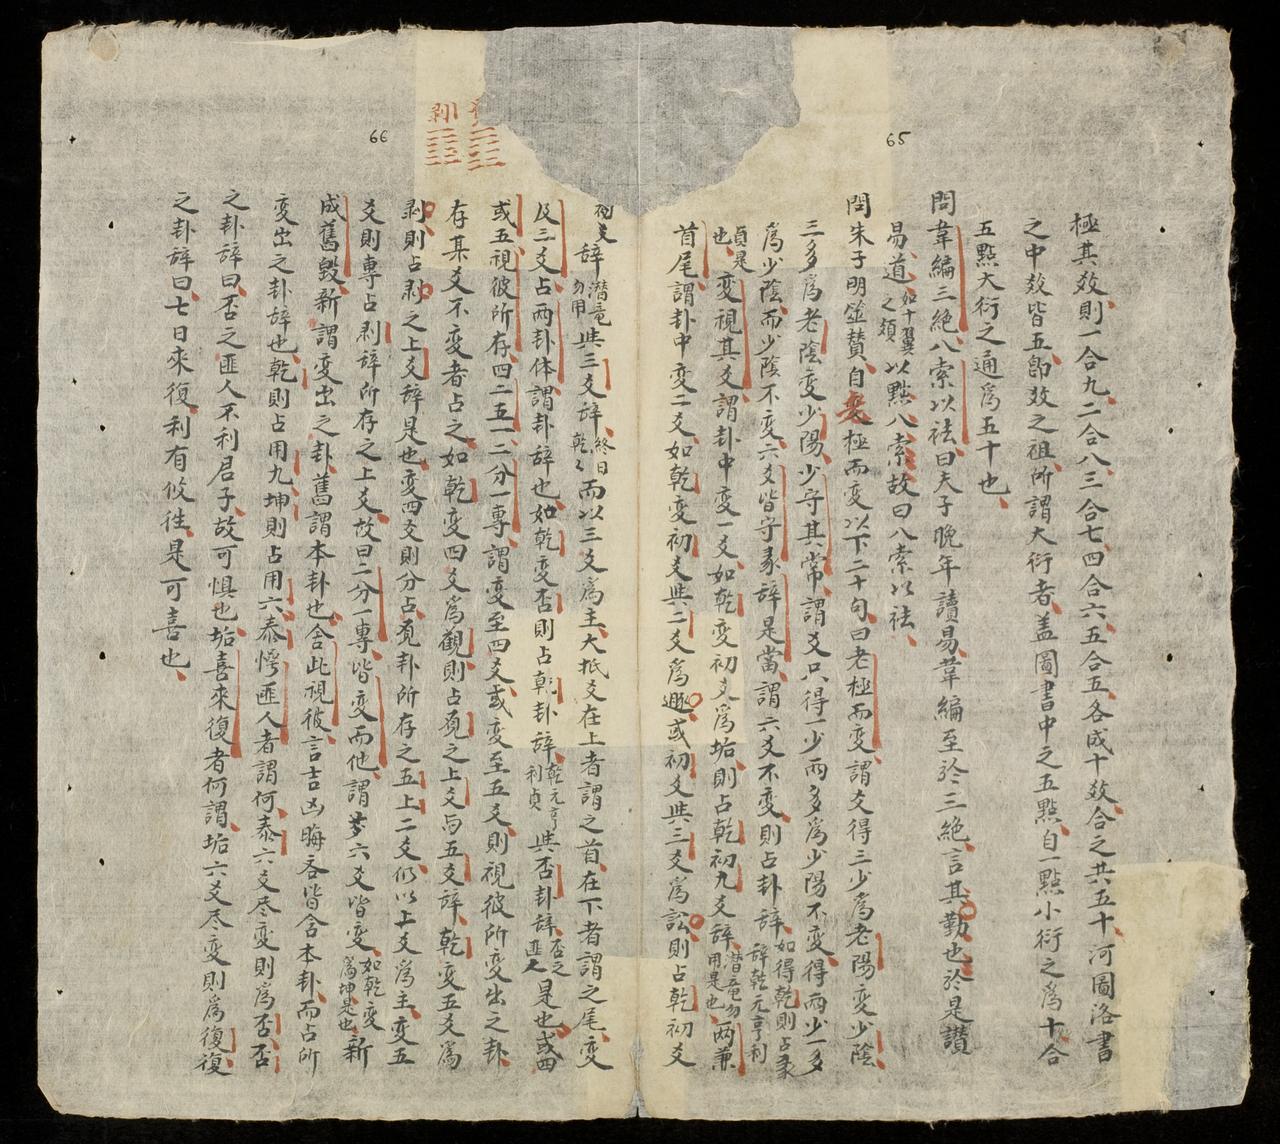 65
極其敎則一合九二合八三合七四合六五合五各成十敎合之共五十河圖洛書
之中敎皆五卽敎之祖所謂大衍者盖圖書中之五點自一點小衍之爲十合
五點大衍之通爲五十也
問韋編三絶八索以祛曰夫子晚年讀易韋編至於三絶言其勤也於是讃
易道如十翼之類以點八索故曰八索以祛
問朱子明筮賛自変極而変以下二十句曰老極而変謂爻得三少爲老陽変少陰
三多爲老陰変少陽少守其常謂爻只得一少兩多爲少陽不変得兩少一多
爲少陰而少陰不変六爻皆守彖辞是當謂六爻不変則占卦辞如得乾則占彖辞乾元亨利
貞是也変視其爻謂卦中変一爻如乾変初爻爲垢則占乾初九爻辞潜竜勿用是也兩兼
首尾謂卦中変二爻如乾変初爻與二爻爲遯或初爻與三爻爲訟則占乾初爻
66
剥
辞潜竜勿用與三爻辞終日乾〻而以三爻爲主大抵爻在上者謂之首在下者謂之尾変
及三爻占兩卦体謂卦辞也如乾変否則占乾卦辞乾元亨利貞與否卦辞否之匪人是也或四
或五視彼所存四二五一二分一專謂変至四爻或変至五爻則視彼所変出之卦
存某爻不変者占之如乾変四爻爲觀則占覌之上爻与五爻辞乾変五爻爲
剥則占剥之上爻辞是也変四爻則分占覌卦所存之五上二爻仍以上爻爲主変五
爻則專占剥辞所存之上爻故曰二分一專皆変而他謂六爻皆変如乾変爲坤是也新
成舊毀新謂変出之卦舊謂本卦也舍此視彼言吉凶晦吝皆舍本卦而占所
変出之卦辞也乾則占用九坤則占用六泰愕匪人者謂何泰六爻尽変則爲否否
之卦辞曰否之匪人不利君子故可惧也垢喜來復者何謂垢六爻尽変則爲復復
之卦辞曰七日來復利有攸往是可喜也